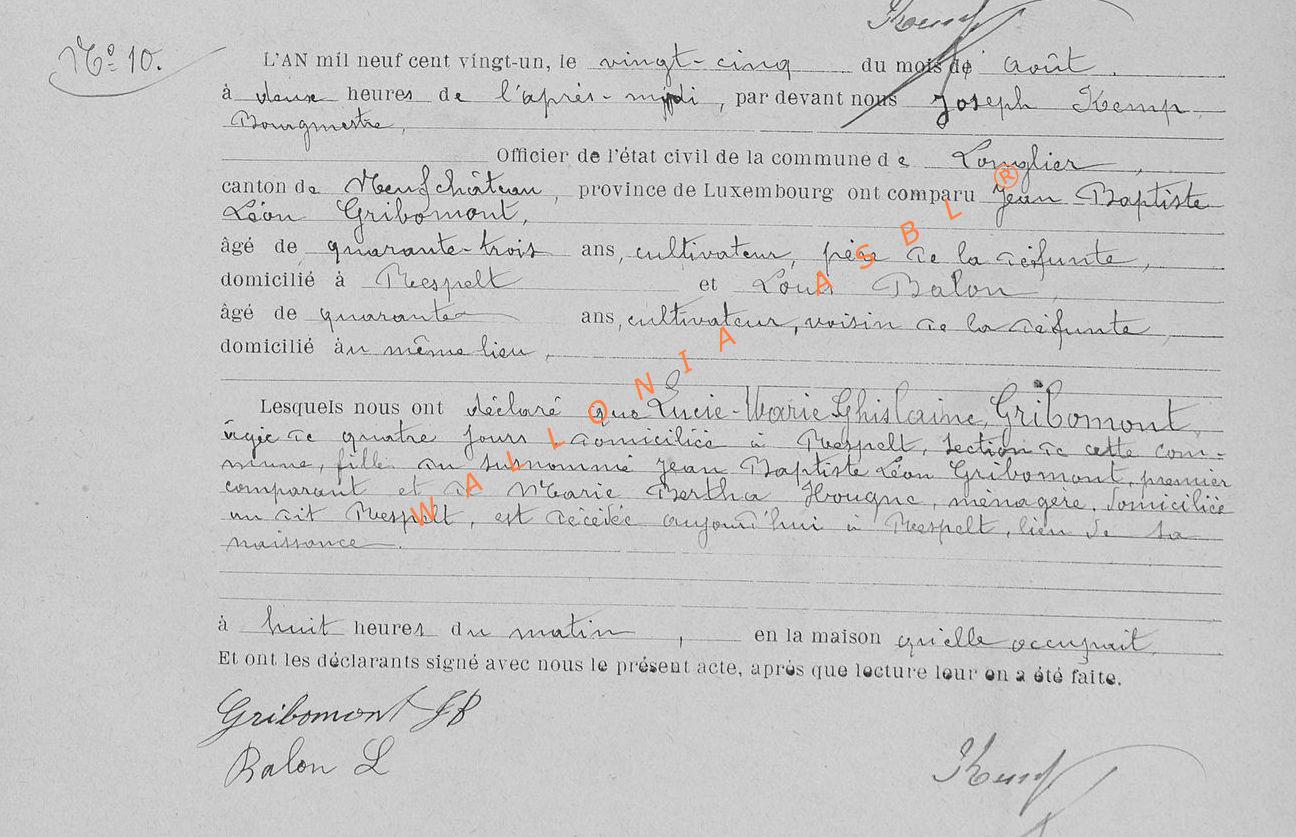 Kemp
N° 10.
L'AN mil neuf cent vingt-un, le vingt-cinq du mois de août.
à deux heures de l'après-midi, par devant nous Joseph Kemp
Bourgmestre,
Officier de l'état civil de la commune de Longlier,
canton de Neufchâteau, province de Luxembourg ont comparu Jean Baptiste
Léon Gribomont,
âgé de quarante-trois ans, cultivateur, père de la défunte,
domicilié à Respelt et Louis Balon,
âgé de quarante ans, cultivateur, voisin de la défunte
domicilié au même lieu,
Lesquels nous ont déclaré que Lucie-Marie Ghislaine, Gribomont,
âgée de quatre jours domiciliée à Respelt, section de cette com-
mune, fille du susnommé Jean Baptiste Léon Gribomont, premier
comparant et de Marie Bertha Hougne, ménagère, domiciliée
au dit Respelt, est décédée aujourd'hui à Respelt, lieu de sa
naissance.
à huit heures du matin, en la maison qu'elle occupait.
Et ont les déclarants signé avec nous le présent acte, après que lecture leur en a été faite.
Gribomont JB
Balon L
Kemp
WALLONIA ASBL ®